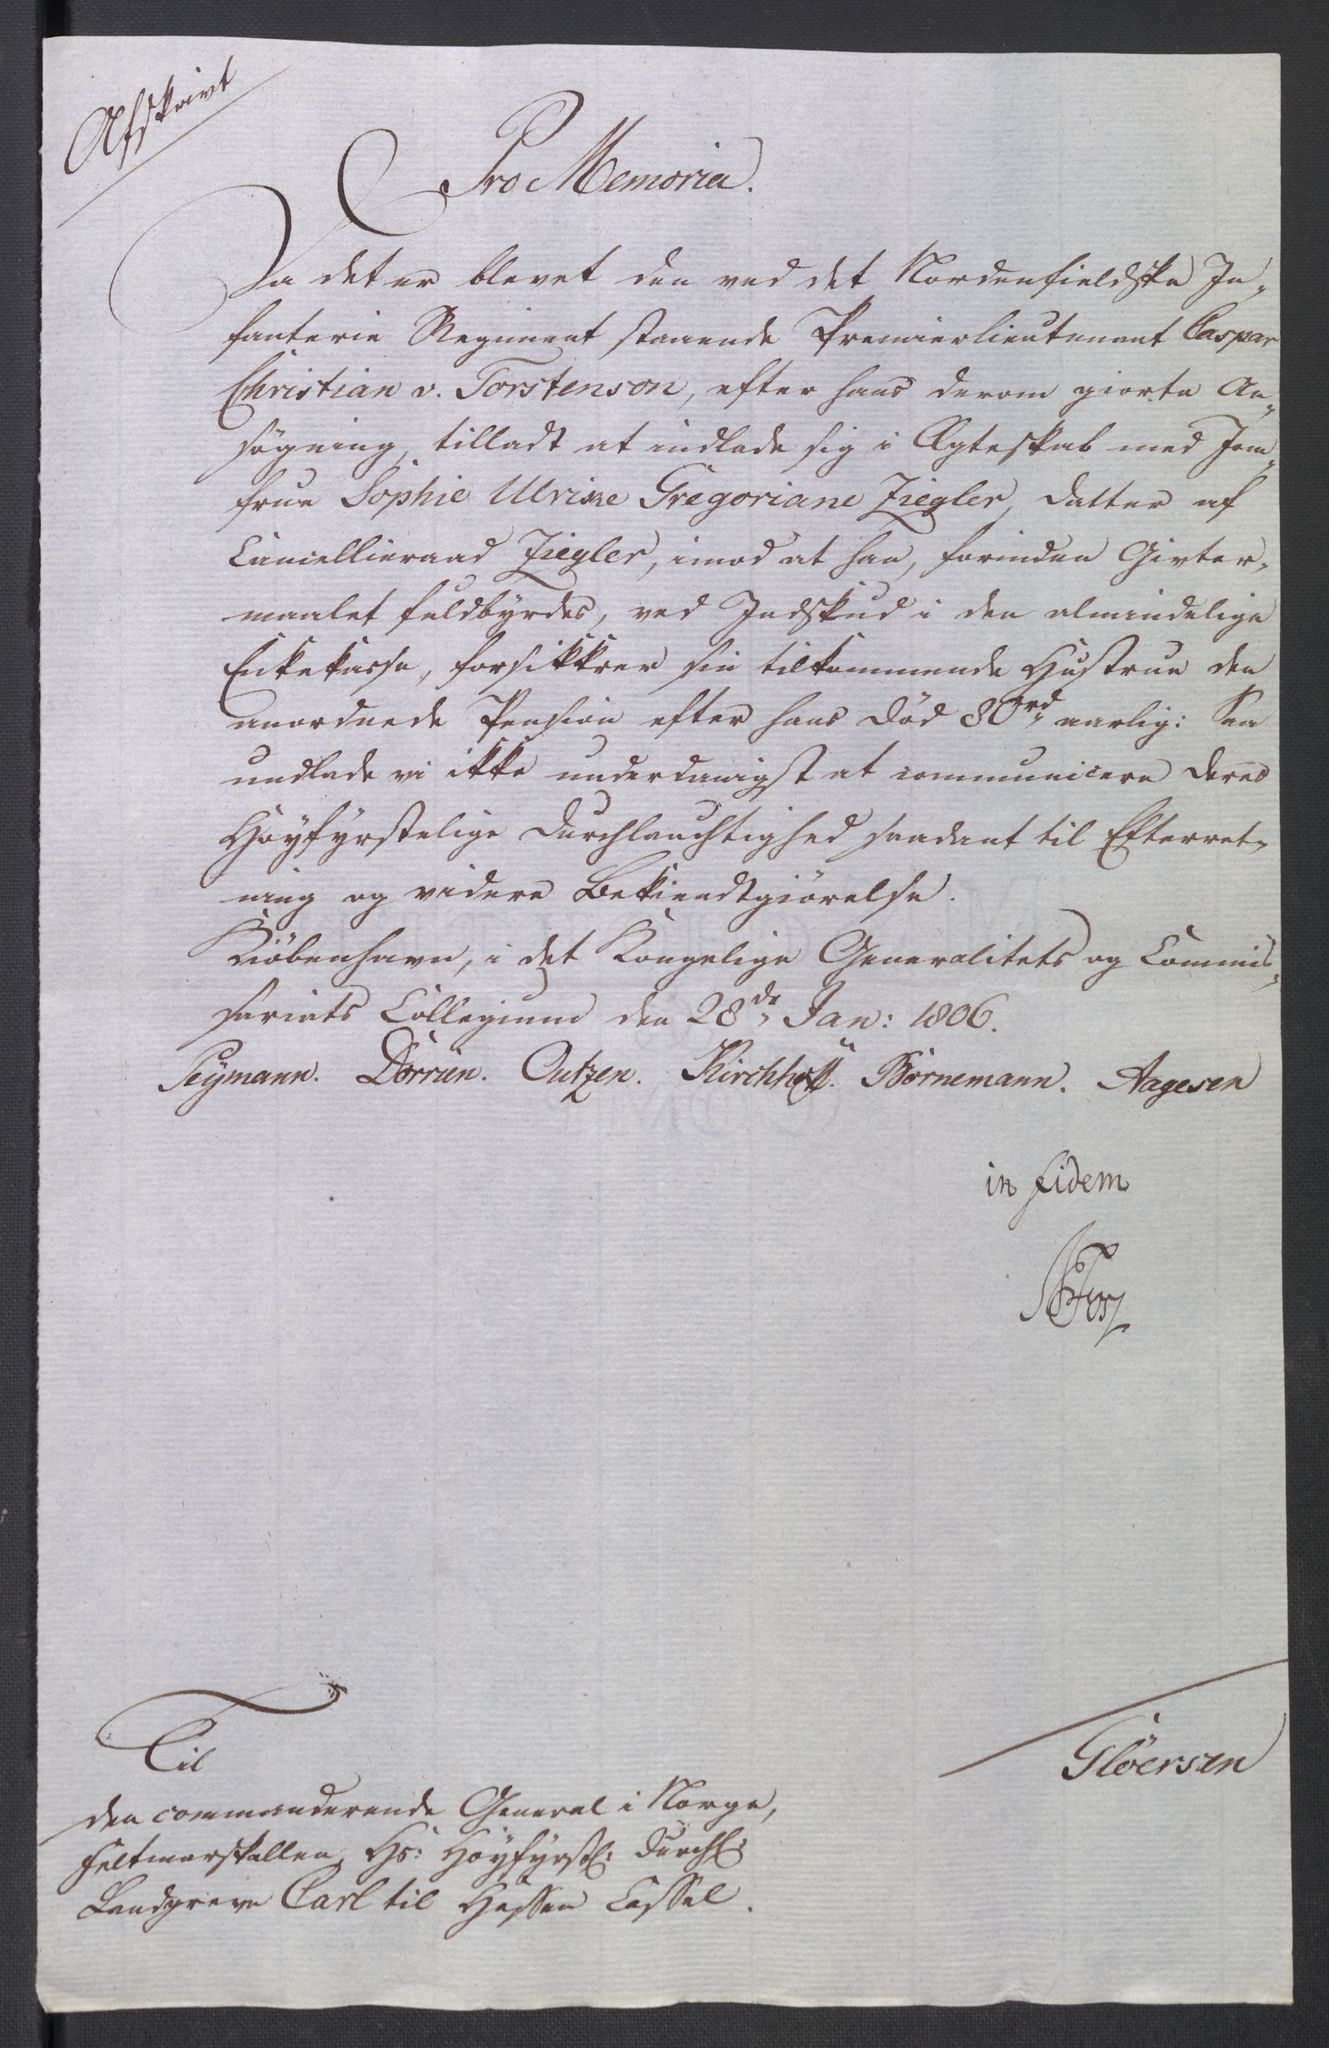 Afskrivt
Pro Memoria.
Da det er blevet den ved det Nordenfieldske In-
fanterie Regiment staaende Premierlieutenant Caspar
Christian v. Torstenson, efter hans derom giorte An-
søgning, tilladt at indlade sig i Ægteskab med Jom-
frue Sophie Ulrike Gregoriane Ziegler, Datter af
Cancellieraad Ziegler, imod at han, forinden Givter-
maalet fuldbyrdes, ved Indskud i den almindelige
Enkekasse, forsikkrer sin tilkommende Hustrue den
anordnede Pension efter hans Død 80 rd. aarlig: Saa
undlade vi ikke underdanigst at communicere Deres
Høyfyrstelige Durchlauchtighed saadant til Efterret-
ning og videre Bekiendtgiørelse.
Kiöbenhavn, i det Kongelige Generalitets og Commis-
sariats Collegium den 28de Jan: 1806.
Peymann. Dörrien. Outzen. Kirchhoff. Bornemann. Aagesen
in fidem
Til
den commanderende General i Norge,
Feltmarskallen, Hs: Høyfyrstl: Durchl:
Landgreve Carl til Hessen Cassel.
Glöersen